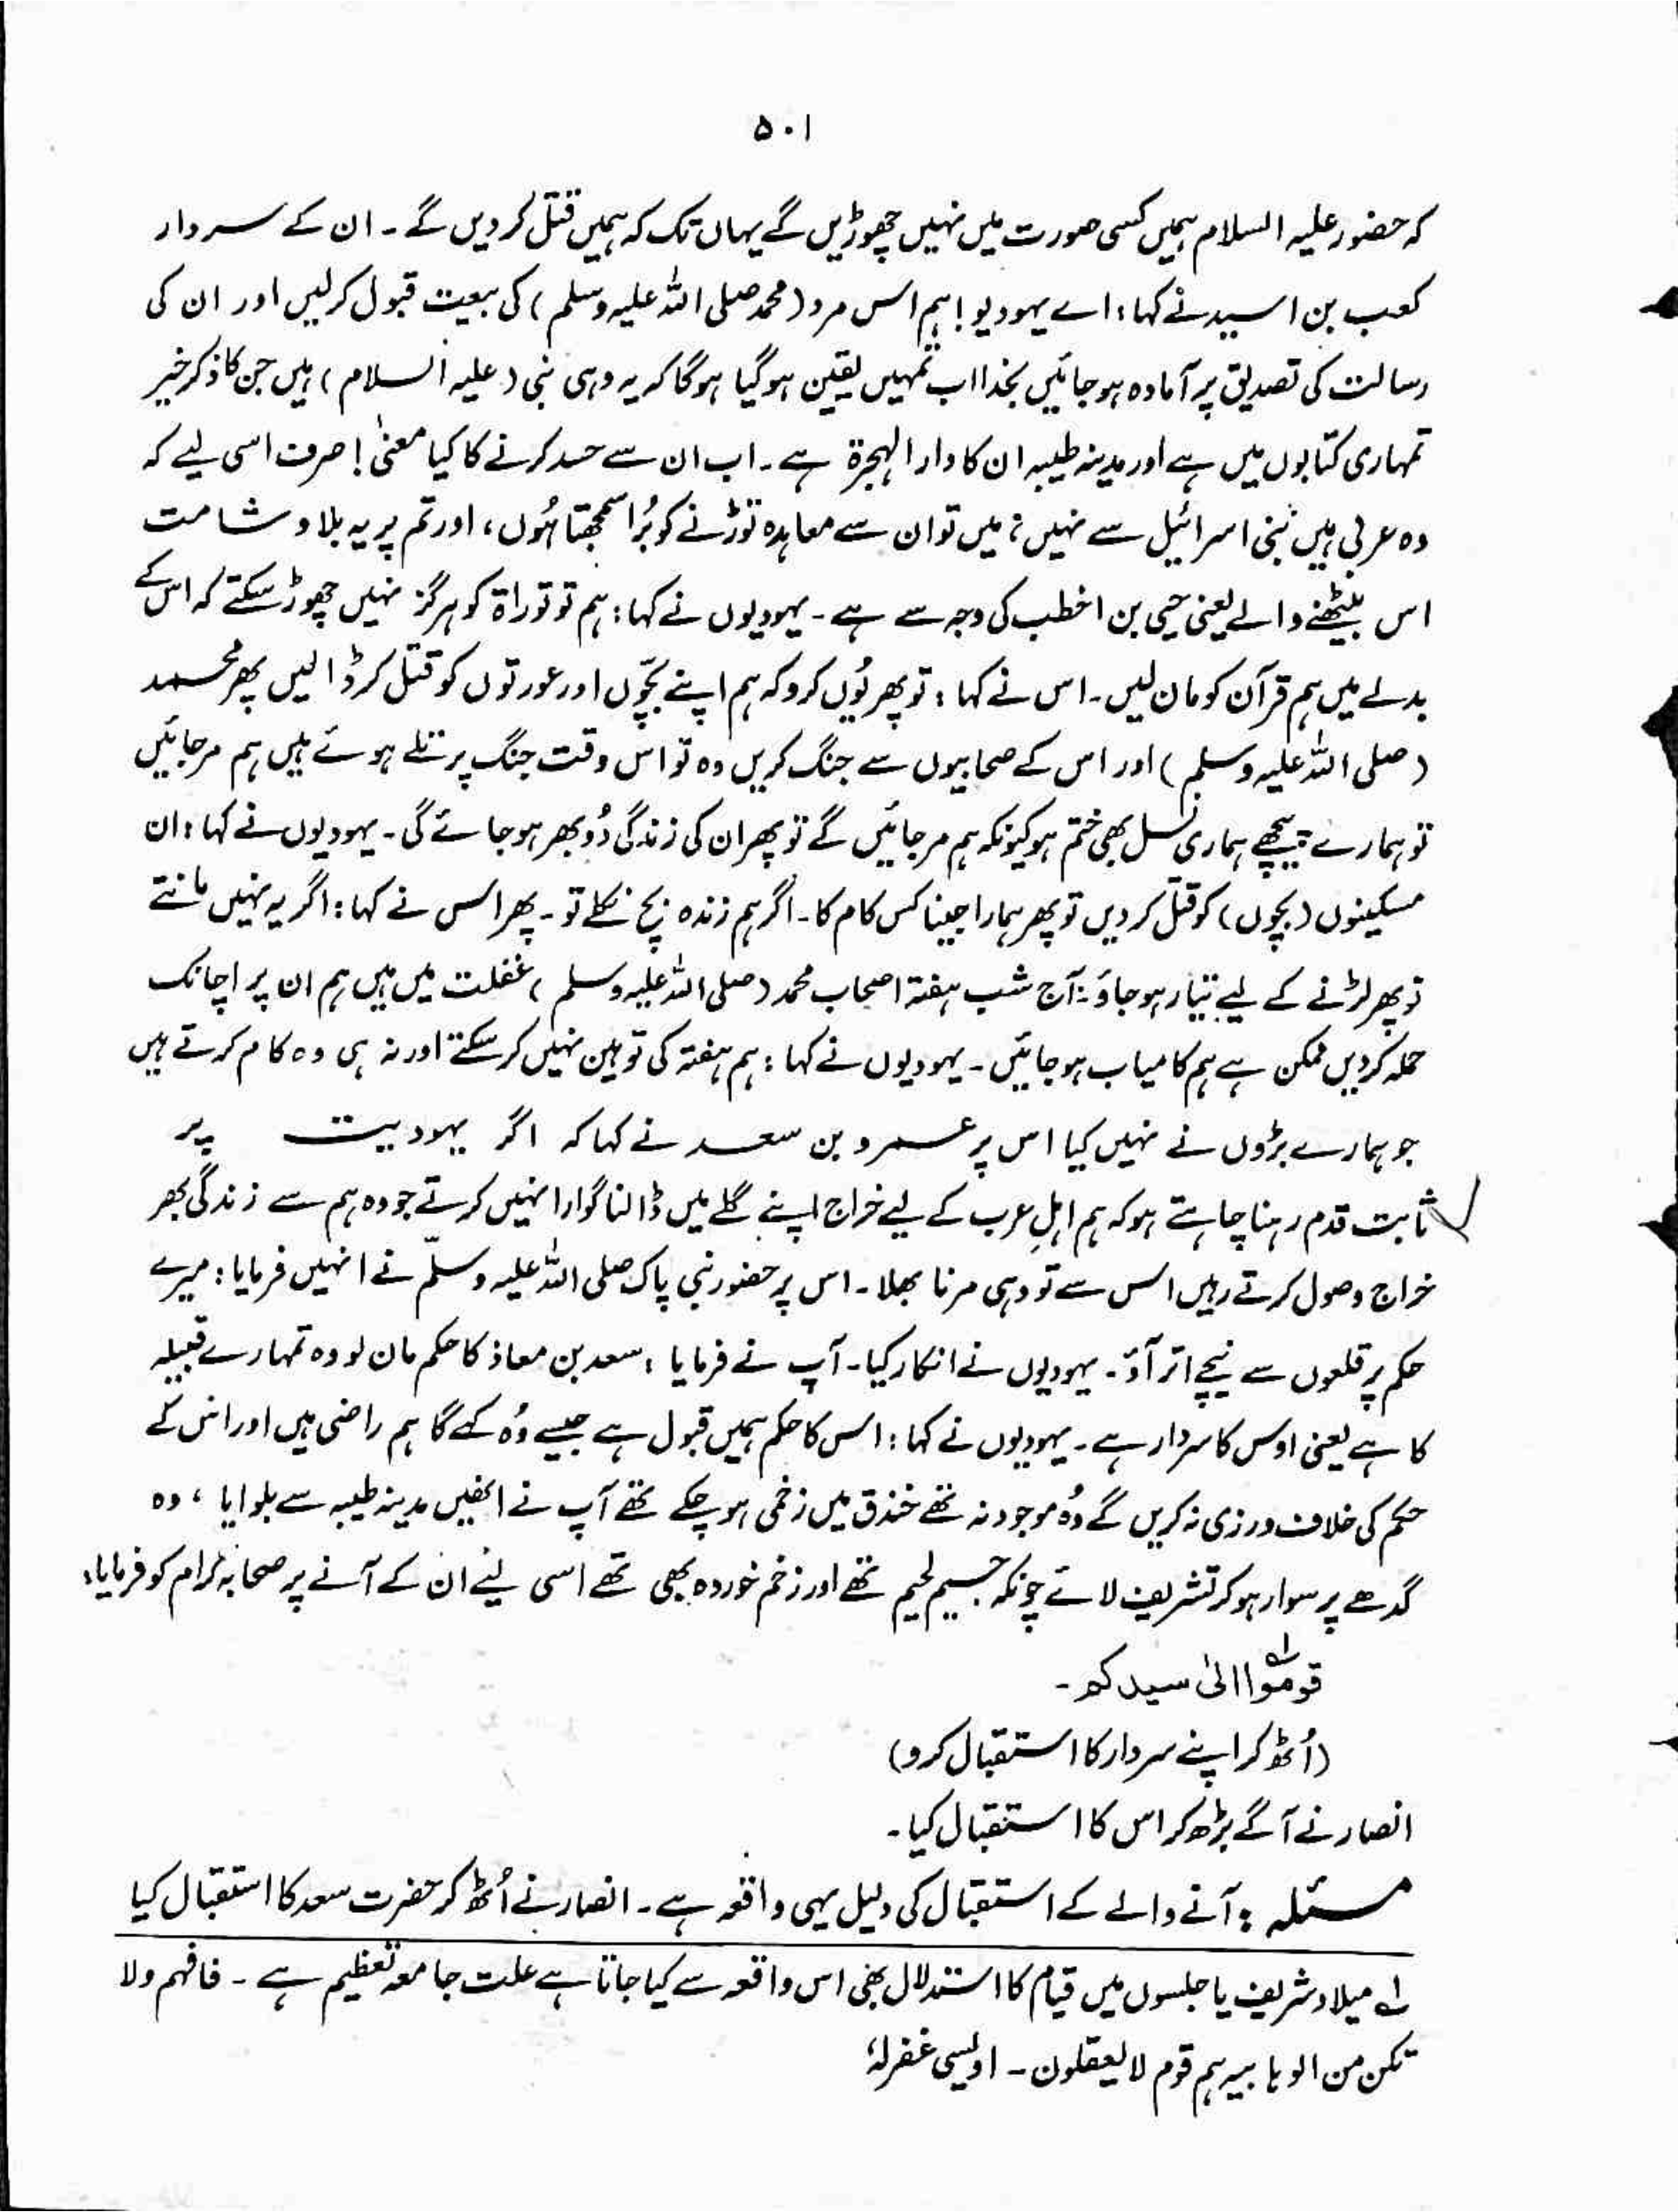 ۵۰۱
کہ حضور علیہ السلام ہمیں کسی صورت میں نہیں چھوڑیں گے یہاں تک کہ ہمیں قتل کر دیں گے ۔ ان کے سردار
کعب بن اسید نے کہا : اے یہودیو ! ہم اس مرد (محمد صلی اللہ علیہ وسلم) کی بیعت قبول کرلیں اور ان کی
رسالت کی تصدیق پر آمادہ ہو جائیں بخدا اب تمہیں یقین ہو گیا ہو گا کہ یہ وہی نبی (علیہ السلام) ہیں جن کا ذکر خیر
تمہاری کتابوں میں ہے اور مدینہ طیبہ ان کا دار الہجرۃ ہے ۔ اب ان سے حسد کرنے کا کیا معنیٰ ! صرف اسی لیے کہ
وہ عربی ہیں بنی اسرائیل سے نہیں ؛ میں تو ان سے معاہدہ توڑنے کو بُرا سمجھتا ہُوں ، اور تم پر یہ بلا و شامت
اس بیٹھنے والے یعنی حیی بن اخطب کی وجہ سے ہے ۔ یہودیوں نے کہا : ہم تو توراۃ کو ہرگز نہیں چھوڑ سکتے کہ اس کے
بدلے میں ہم قرآن کو مان لیں ۔ اس نے کہا : تو پھر یُوں کرو کہ ہم اپنے بچّوں اور عورتوں کو قتل کر ڈالیں پھر محمد
(صلی اللہ علیہ وسلم) اور اس کے صحابیوں سے جنگ کریں وہ تو اس وقت جنگ پر تلے ہوئے ہیں ہم مر جائیں
تو ہمارے پیچھے ہماری نسل بھی ختم ہو کیونکہ ہم مر جائیں گے تو پھر ان کی زندگی دُوبھر ہو جائے گی ۔ یہودیوں نے کہا : ان
مسکینوں (بچوں) کو قتل کر دیں تو پھر ہمارا جینا کس کام کا ۔ اگر ہم زندہ بچ نکلے تو ۔ پھر اس نے کہا : اگر یہ نہیں مانتے
تو پھر لڑنے کے لیے تیار ہو جاؤ ۔ آج شب ہفتہ اصحاب محمد (صلی اللہ علیہ وسلم) غفلت میں ہیں ہم ان پر اچانک
حملہ کر دیں ممکن ہے ہم کامیاب ہو جائیں ۔ یہودیوں نے کہا : ہم ہفتہ کی توہین نہیں کر سکتے اور نہ ہی وہ کام کرتے ہیں
جو ہمارے بڑوں نے نہیں کیا اس پر عمرو بن سعد نے کہا کہ اگر یہودیت پر
ثابت قدم رہنا چاہتے ہو کہ ہم اہلِ عرب کے لیے خراج اپنے گلے میں ڈالنا گوارا نہیں کرتے جو وہ ہم سے زندگی بھر
خراج وصول کرتے رہیں اس سے تو وہی مرنا بھلا ۔ اس پر حضور نبی پاک صلی اللہ علیہ وسلّم نے انہیں فرمایا : میرے
حکم پر قلعوں سے نیچے اتر آؤ ۔ یہودیوں نے انکار کیا ۔ آپ نے فرمایا : سعد بن معاذ کا حکم مان لو وہ تمہارے قبیلہ
کا ہے یعنی اوس کا سردار ہے ۔ یہودیوں نے کہا : اس کا حکم ہمیں قبول ہے جیسے وُہ کہے گا ہم راضی ہیں اور اس کے
حکم کی خلاف ورزی نہ کریں گے وُہ موجود نہ تھے خندق میں زخمی ہو چکے تھے آپ نے انھیں مدینہ طیبہ سے بلوایا ، وہ
گدھے پر سوار ہو کر تشریف لائے چونکہ جسیم لحیم تھے اور زخم خوردہ بھی تھے اسی لیے ان کے آنے پر صحابہ کرام کو فرمایا :
قوموا الیٰ سیدکم ۔ لے
(اُٹھ کر اپنے سردار کا استقبال کرو)
انصار نے آگے بڑھ کر اس کا استقبال کیا ۔
مسئلہ : آنے والے کے استقبال کی دلیل یہی واقعہ ہے ۔ انصار نے اُٹھ کر حضرت سعد کا استقبال کیا
لے میلاد شریف یا جلسوں میں قیام کا استدلال بھی اس واقعہ سے کیا جاتا ہے علت جامعہ تعظیم ہے ۔ فافہم ولا
تکن من الوہابیہ ہم قوم لا یعقلون ۔ اویسی غفرلہٗ